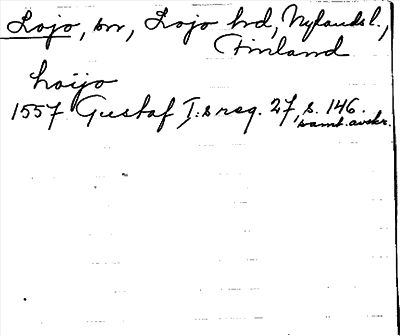 Lojo, sn, Lojo hd, Nylands l.,
Finland
Loijo
1557 Gustaf I:s reg. 27, s. 146.
samt. avskr.